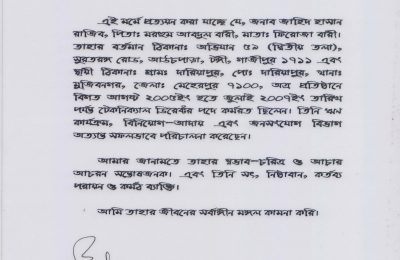 এই মর্মে প্রত্যয়ন করা যাচ্ছে যে, জনাব জাহিদ হাসান
রাজিব, পিতাঃ মরহুম আবদুল বারী, মাতাঃ ফিরোজা বারী।
তাহার বর্তমান ঠিকানাঃ অভিযান ৫৯ (দ্বিতীয় তলা),
সুরতরঙ্গ রোড, আউচপাড়া, টঙ্গী, গাজীপুর ১৭১১ এবং
স্থায়ী ঠিকানাঃ গ্রামঃ দারিয়াপুর, পোঃ দারিয়াপুর, থানাঃ
মুজিবনগর, জেলাঃ মেহেরপুর ৭১০০, অত্র প্রতিষ্ঠানে
বিগত আগস্ট ২০০৫ইং হতে জুলাই ২০০৭ইং তারিখ
পর্যন্ত টেকনিক্যাল পদে কর্মরত ছিলেন। তিনি ঋন
কার্যক্রম, বিনিয়োগ-আদায় এবং জনসংযোগ বিভাগ
অত্যন্ত সফলভাবে পরিচালনা করেছেন।
আমার জানামতে তাহার স্বভাব-চরিত্র ও আচার
আচরন সন্তোষজনক। এবং তিনি সৎ, নিষ্ঠাবান, কর্তব্য
পরায়ন ও কর্মঠ ব্যাক্তি।
আমি তাহার জীবনের সর্বাঙ্গীন মঙ্গল কামনা করি।